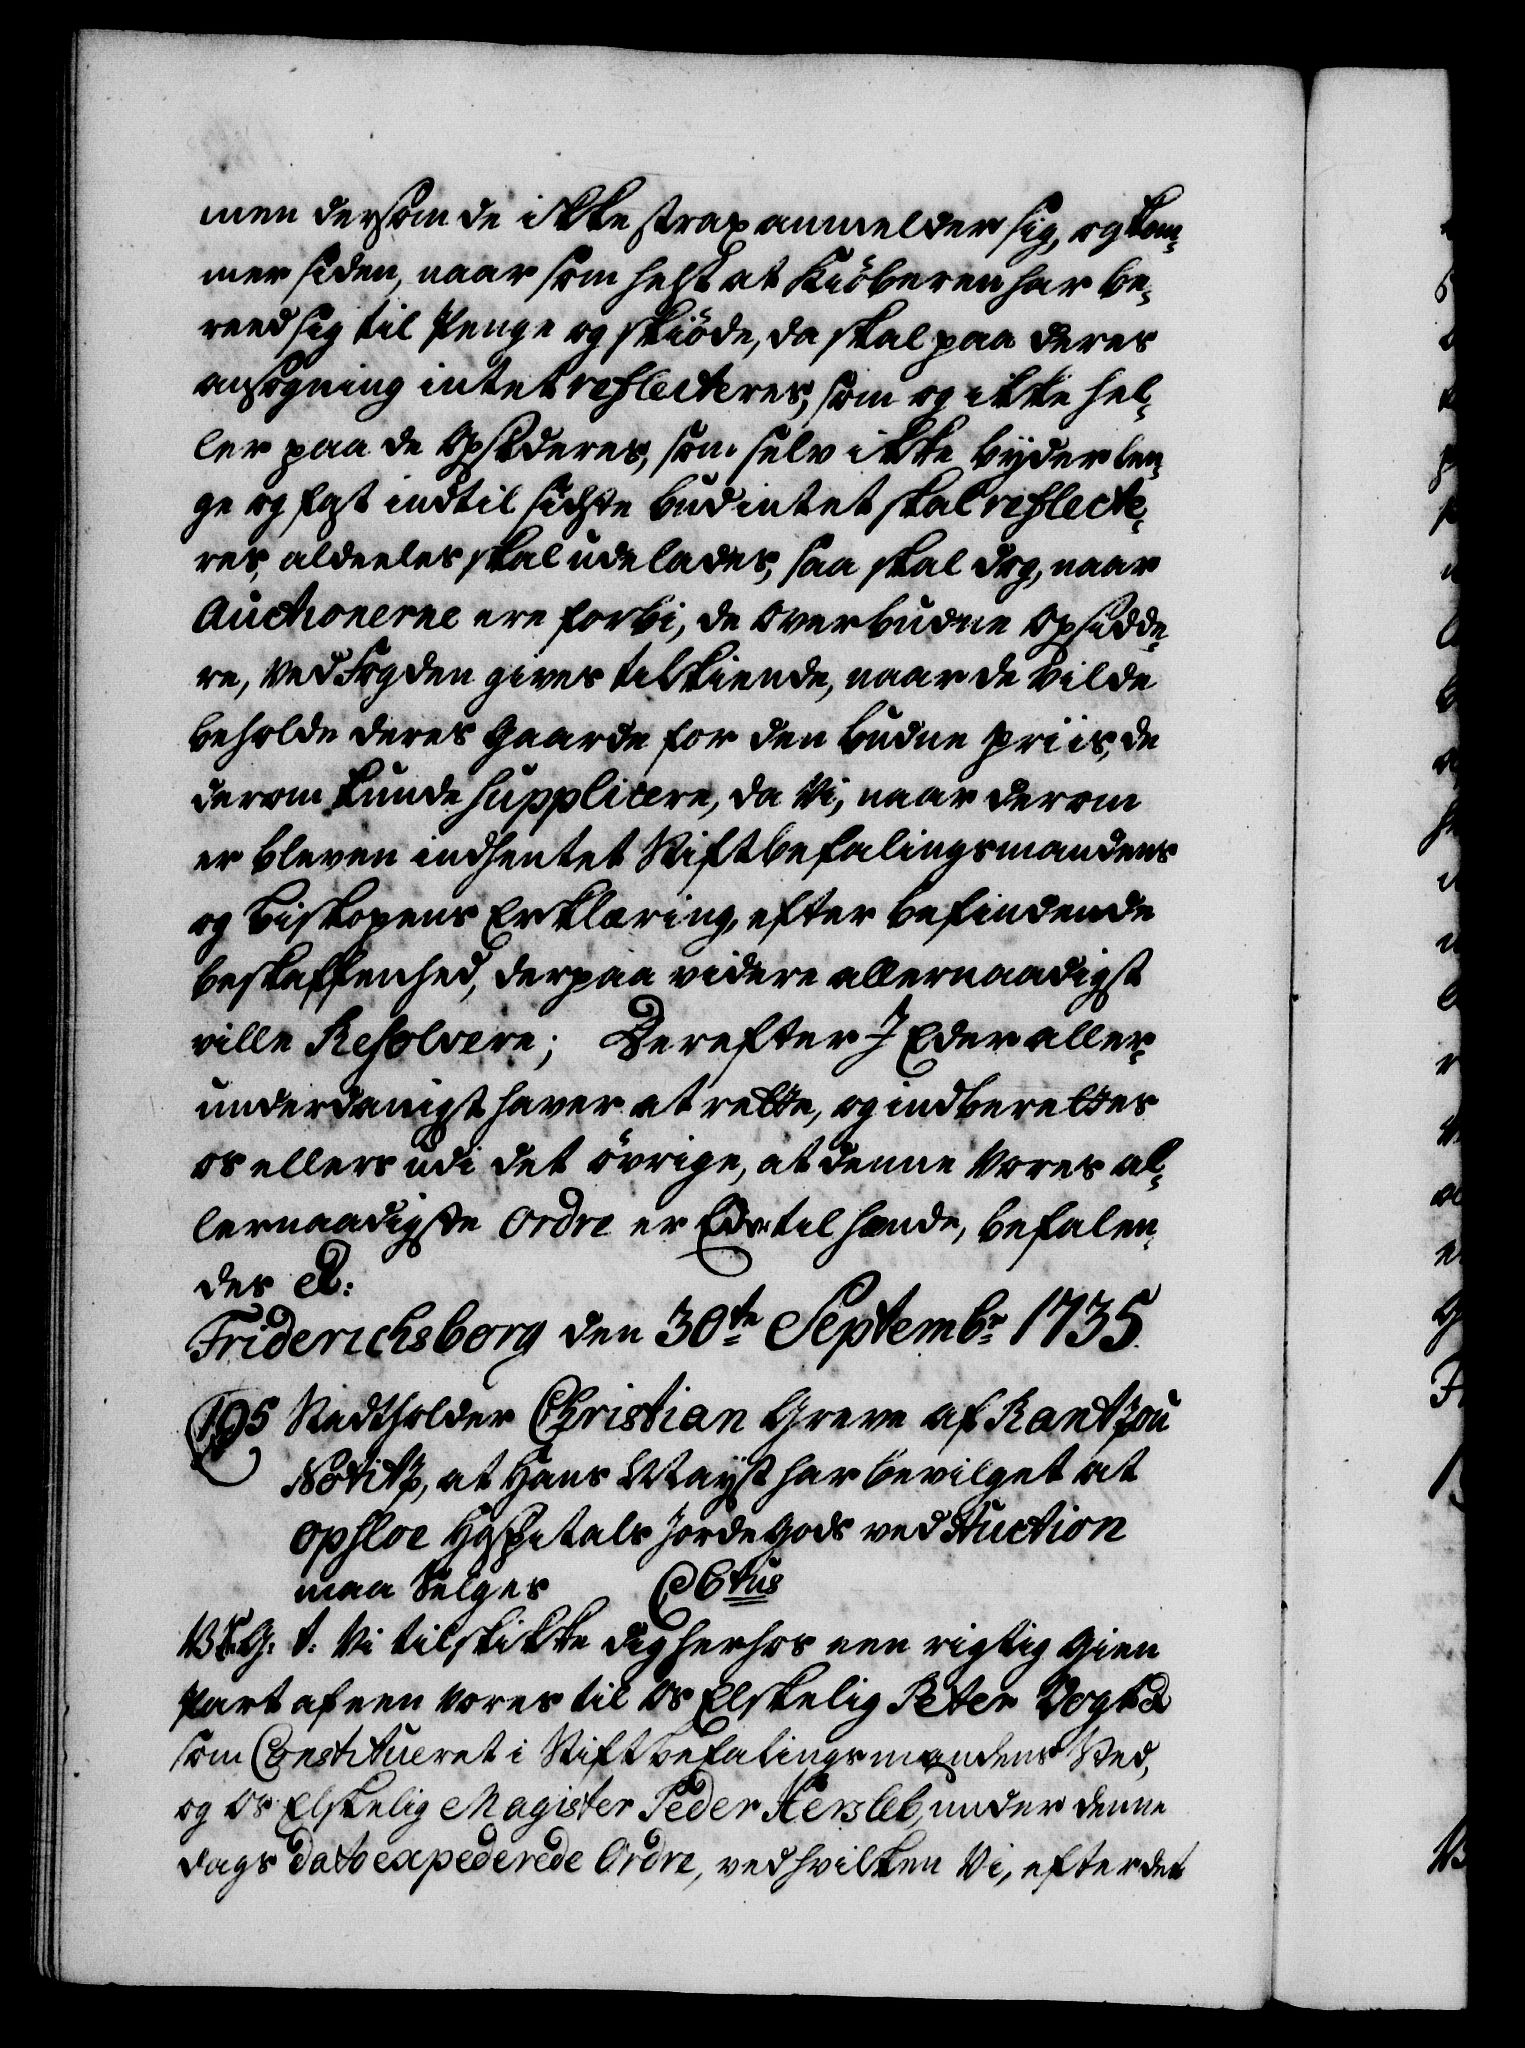 men dersom de ikke strax anmelder sig, og kom¬
mer siden, naar som helst at Kiöberen har be¬
reed sig til Penge og skiöde, da skal paa deres
ansøgning intet reflecteres, som og ikke hel¬
ler paa de Opsidderes, som selv ikke byder len¬
ge og fast indtil sidste bud intet skal reflecte¬
res, aldeeles skal udelades, saa skal dog, naar
Auctionerne ere forbi, de overbudne Opsidde¬
re, ved Fogden gives tilkiende, naar de vilde
beholde deres Gaarde for den budne priis, de
derom kunde supplicere, da Vi, naar derom
er bleven indhentet Stiftbefalingsmandens
og Biskopens Erklæring, efter befindende
beskaffenhed, derpaa videre allernaadigst
ville Resolvere; Derefter I Eder aller¬
underdanigst haver at rette, og indberettes
os ellers udi det övrige, at denne Vores al¬
lernaadigste Ordre er Eder tilhænde, befalen¬
des &:
Friderichsborg den 30te Septembr 1735.
195 Stadtholder Christian Greve af Rantzou
Notitz, at Hans Mayst har bevilget at
Opsloe Hospitals Jorde Gods ved Auction
maa Selges
V. S. G. t. Vi tilskikke dig herhos een rigtig Gien
Part af een Vores til Os Elskelig Peter Vogt
som Constitueret i Stiftbefalingsmandens Sted,
og Os Elskelig Magister Peder Hersleb, under denne
dags dato expederede Ordre, ved hvilken Vi, efter det